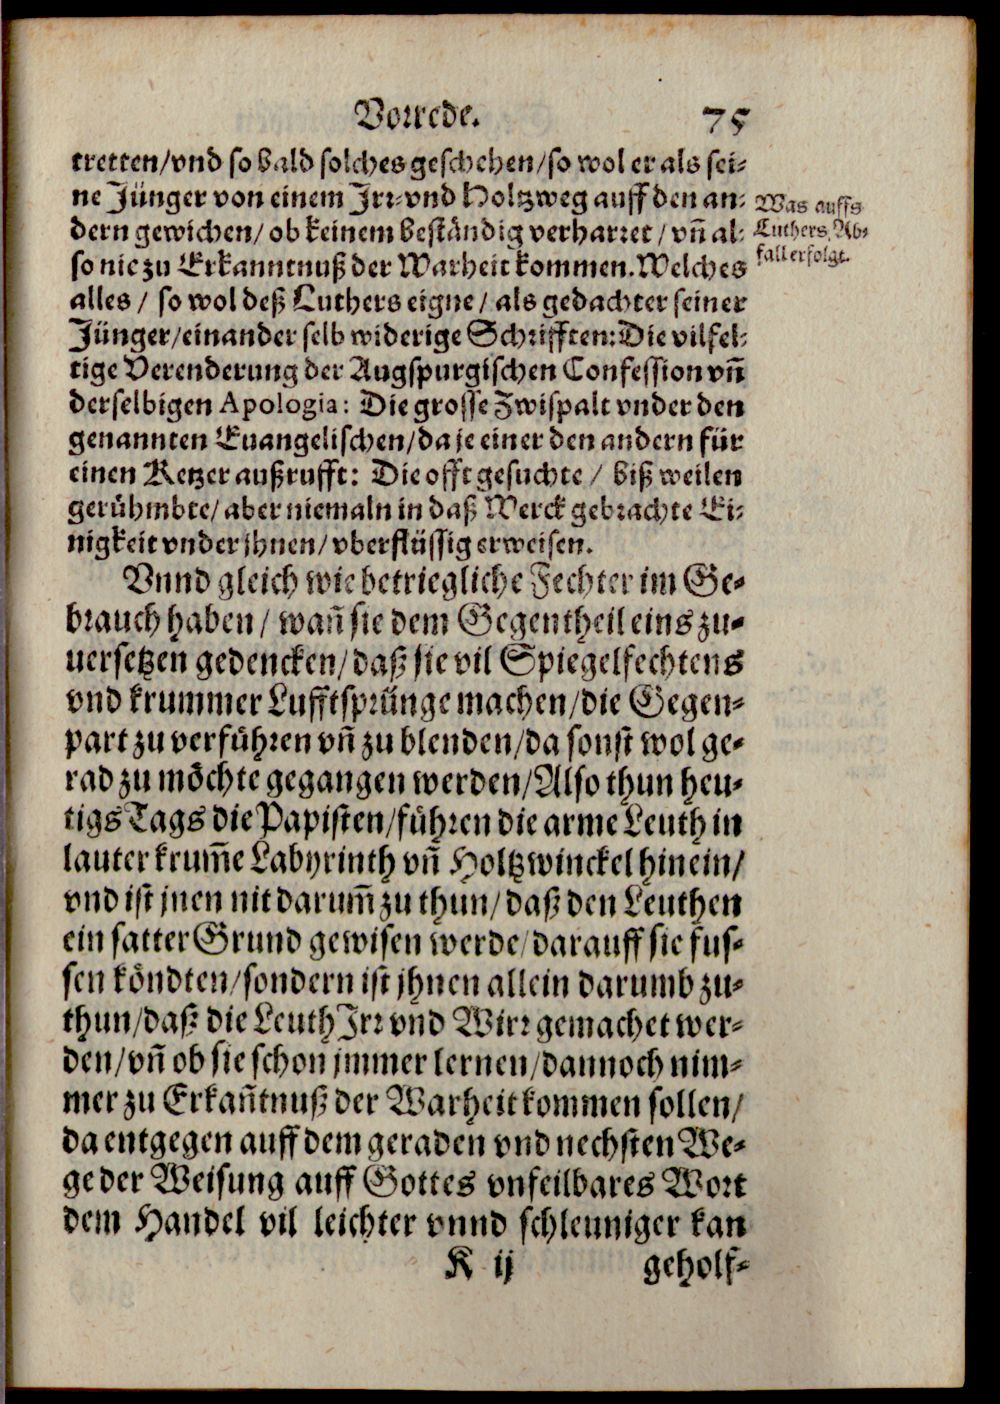 Vorrede. 75
tretten/vnd so bald solches geschehen/so wol er als sei-
ne Jünger von einem Irr-vnd Holtzweg auff den an-
dern gewichen/ ob keinem beständig verharret / vñ al-
so nie zu Erkanntnuß der Warheit kommen. Welches
alles / so wol deß Luthers eigne / als gedachter seiner
Jünger/einander selb widerige Schrifften: Die vilfel-
tige Verenderung der Augspurgischen Confession vñ
derselbigen Apologia: Die grosse Zwispalt vnder den
genannten Euangelischen/da je einer den andern für
einen Ketzer außrufft: Die offt gesuchte / bißweilen
gerühmbte/ aber niemaln in daß Werck gebrachte Ei-
nigkeit vnder jhnen/ vberflüssig erweisen.
Was auffs
Luthers Ab-
fall erfolgt.
Vnnd gleich wie betriegliche Fechter im Ge-
brauch haben/ wañ sie dem Gegentheil eins zu-
uersetzen gedencken/daß sie vil Spiegelfechtens
vnd krummer Lufftsprünge machen/die Gegen-
part zu verführen vñ zu blenden/da sonst wol ge-
rad zu möchte gegangen werden/Also thun heu-
tigs Tags die Papisten/führen die arme Leuth in
lauter krum̃e Labyrinth vñ Holtzwinckel hinein/
vnd ist jnen nit darum̃ zu thun/daß den Leuthen
ein satter Grund gewisen werde/darauff sie fus-
sen köndten/sondern ist jhnen allein darumb zu-
thun/daß die Leuth Irr vnd Wirr gemachet wer-
den/vñ ob sie schon jmmer lernen/dannoch nim-
mer zu Erkañtnuß der Warheit kommen sollen/
da entgegen auff dem geraden vnd nechsten We-
ge der Weisung auff Gottes vnfeilbares Wort
dem Handel vil leichter vnnd schleuniger kan
K ij geholf-